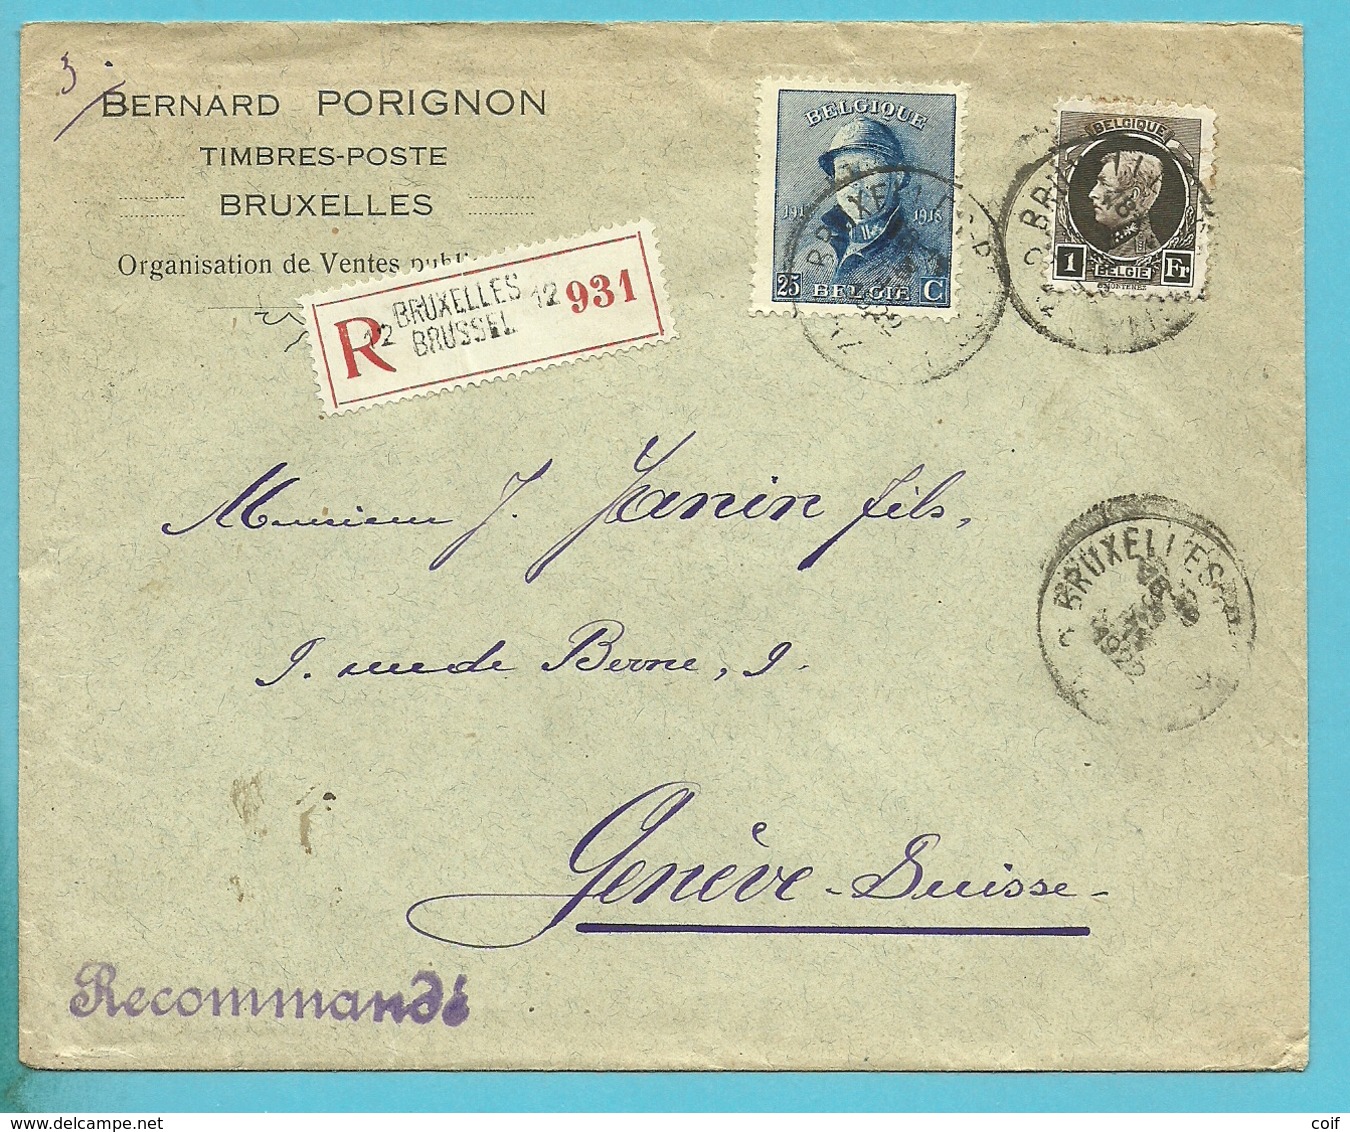 3.
BERNARD PORIGNON
TIMBRES-POSTE
BRUXELLES
Organisation de Ventes publi
R
12 BRUXELLES 12
BRUSSEL
931
BELGIQUE
1918
25 BELGIË C
BELGIQUE
1 BELGIË Fr
BRUXELLES
BRUXELLES
1922
Monsieur J. Janin fils,
9. rue de Berne, 9.
Genève - Suisse -
Recommandé
coif